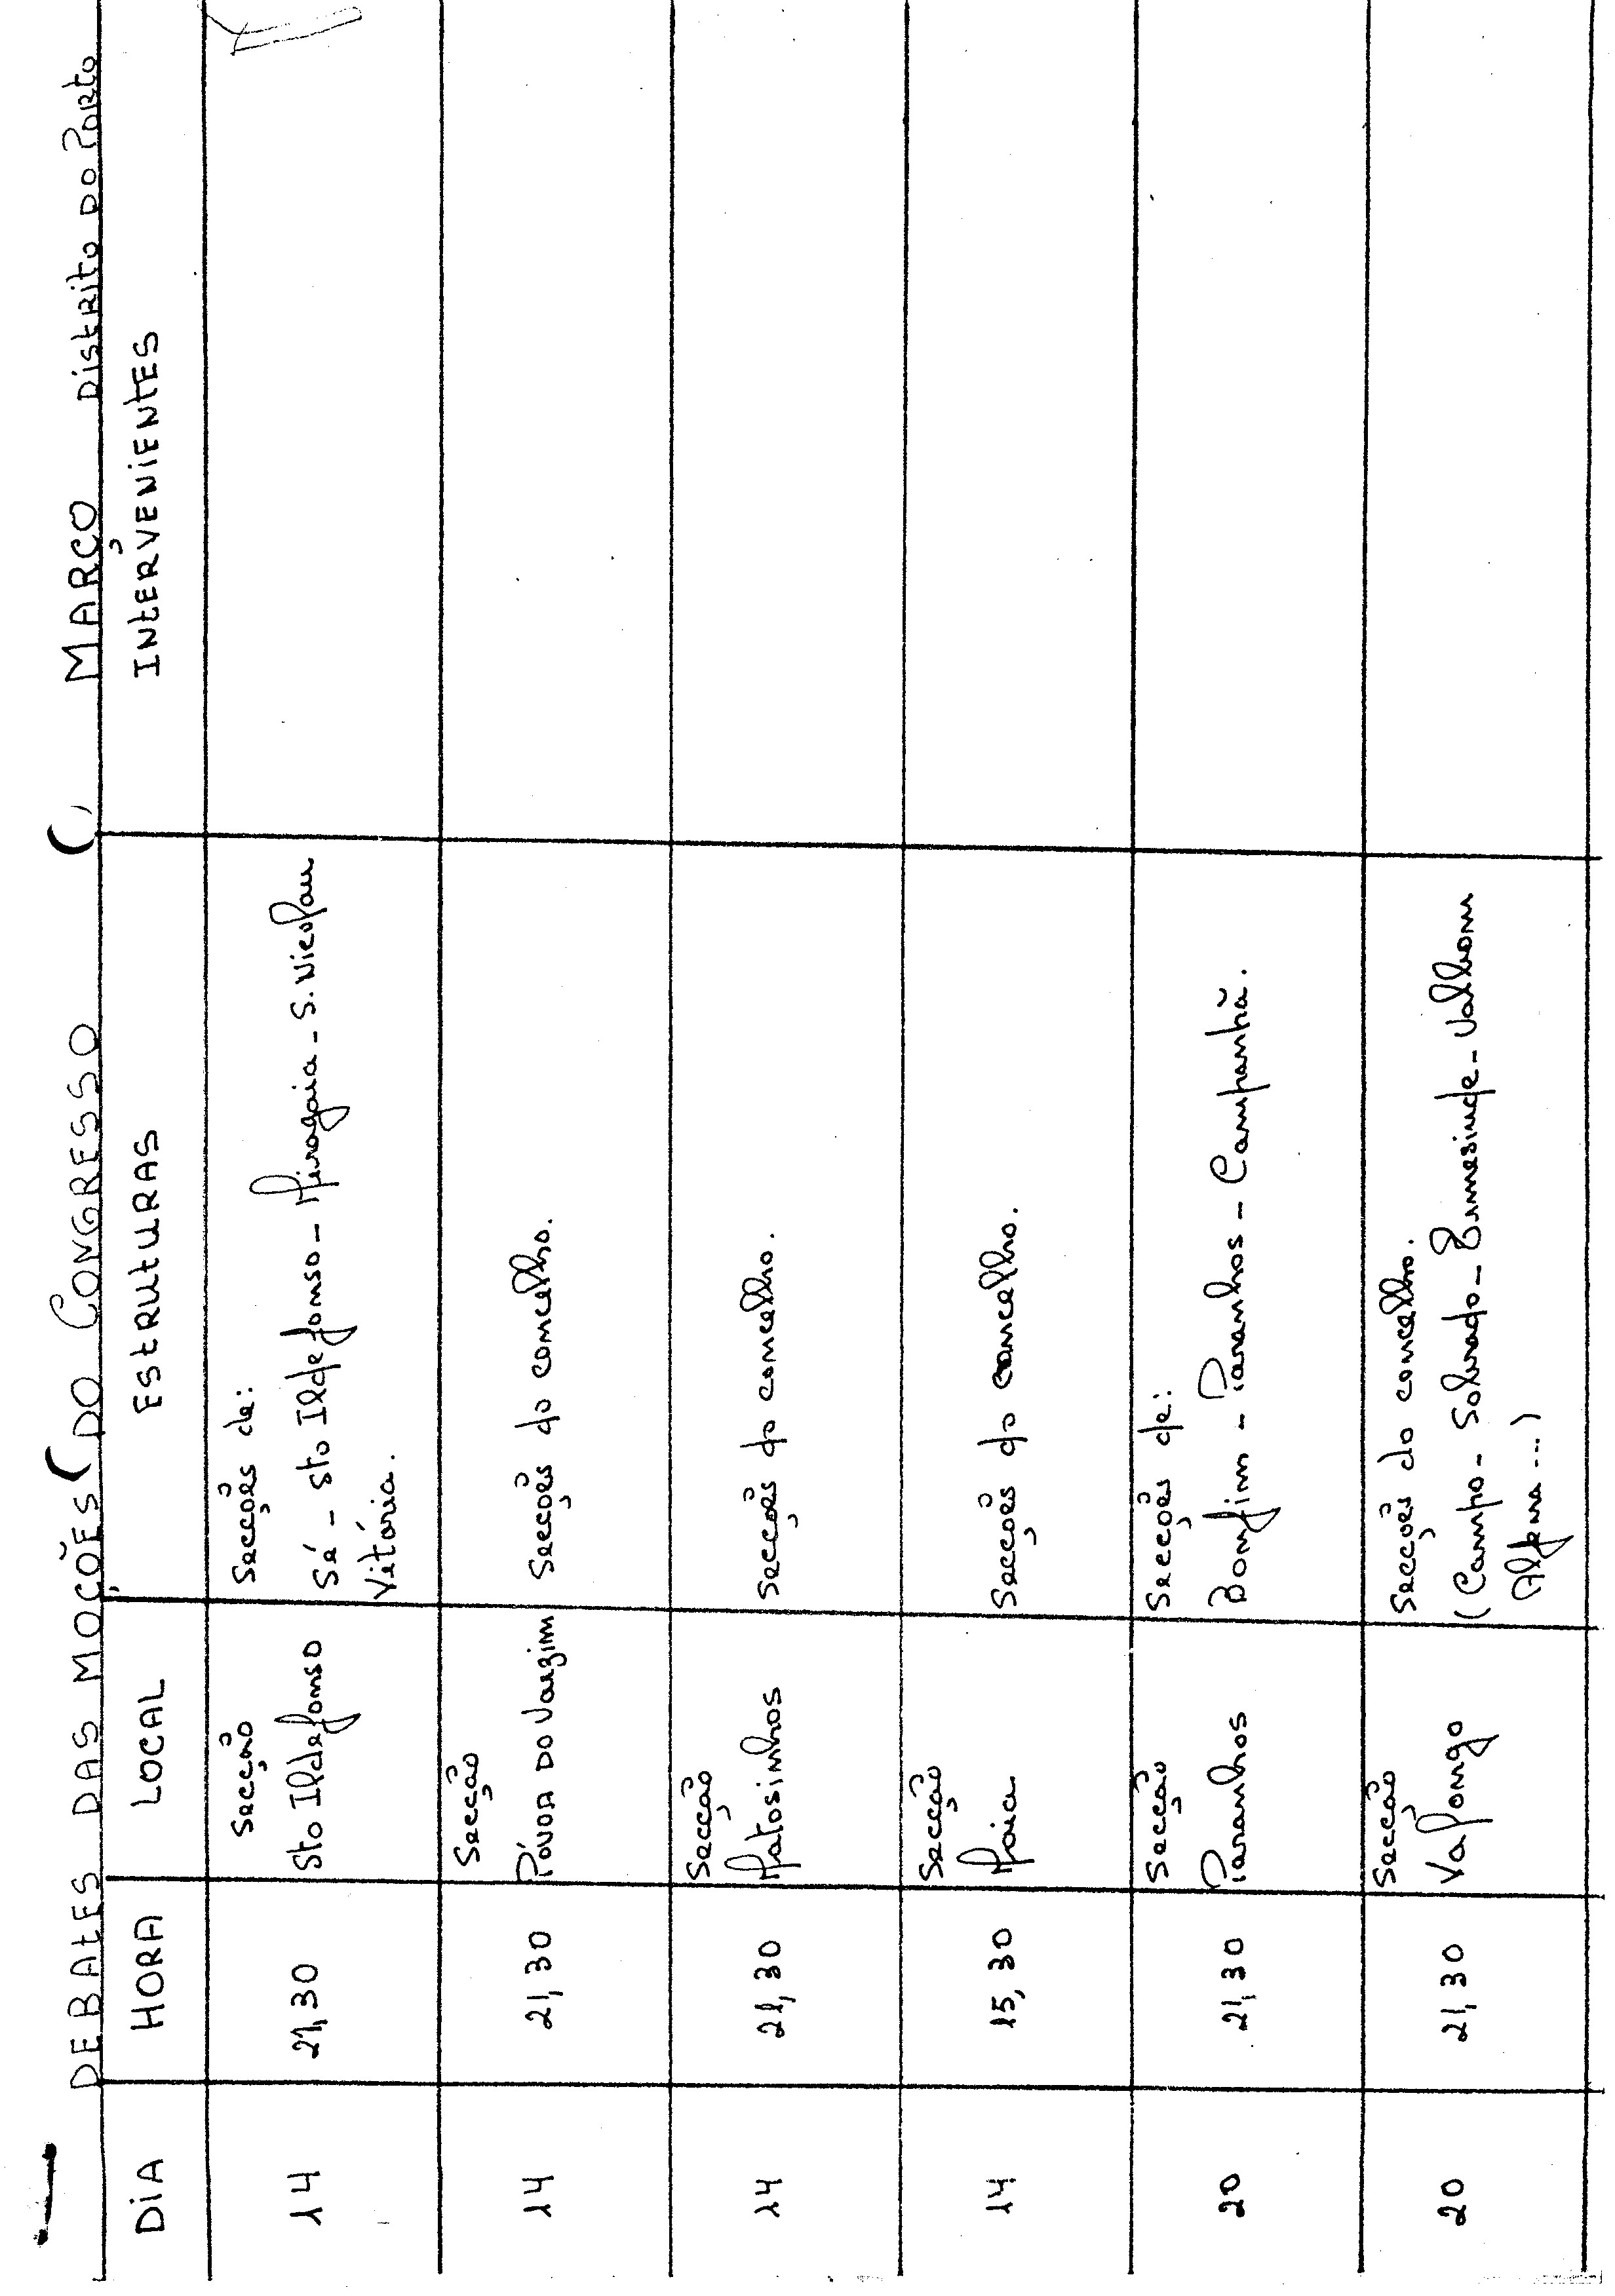 DEBATES DAS MOÇÕES DO CONGRESSO MARÇO DISTRITO DO PORTO
DIA HORA LOCAL ESTRUTURAS INTERVENIENTES
14 21,30 Secção Sto Ildefonso Secções de:
Sé - Sto Ildefonso - Miragaia - S. Nicolau
Vitória.
14 21,30 Secção Póvoa do Varzim Secções do concelho.
14 21,30 Secção Matosinhos Secções do concelho.
14 15,30 Secção Maia Secções do concelho.
20 21,30 Secção Paranhos Secções de:
Bonfim - Paranhos - Campanhã.
20 21,30 Secção Valongo Secções do concelho.
(Campo - Sobrado - Ermesinde - Valbom
Alfena ...)